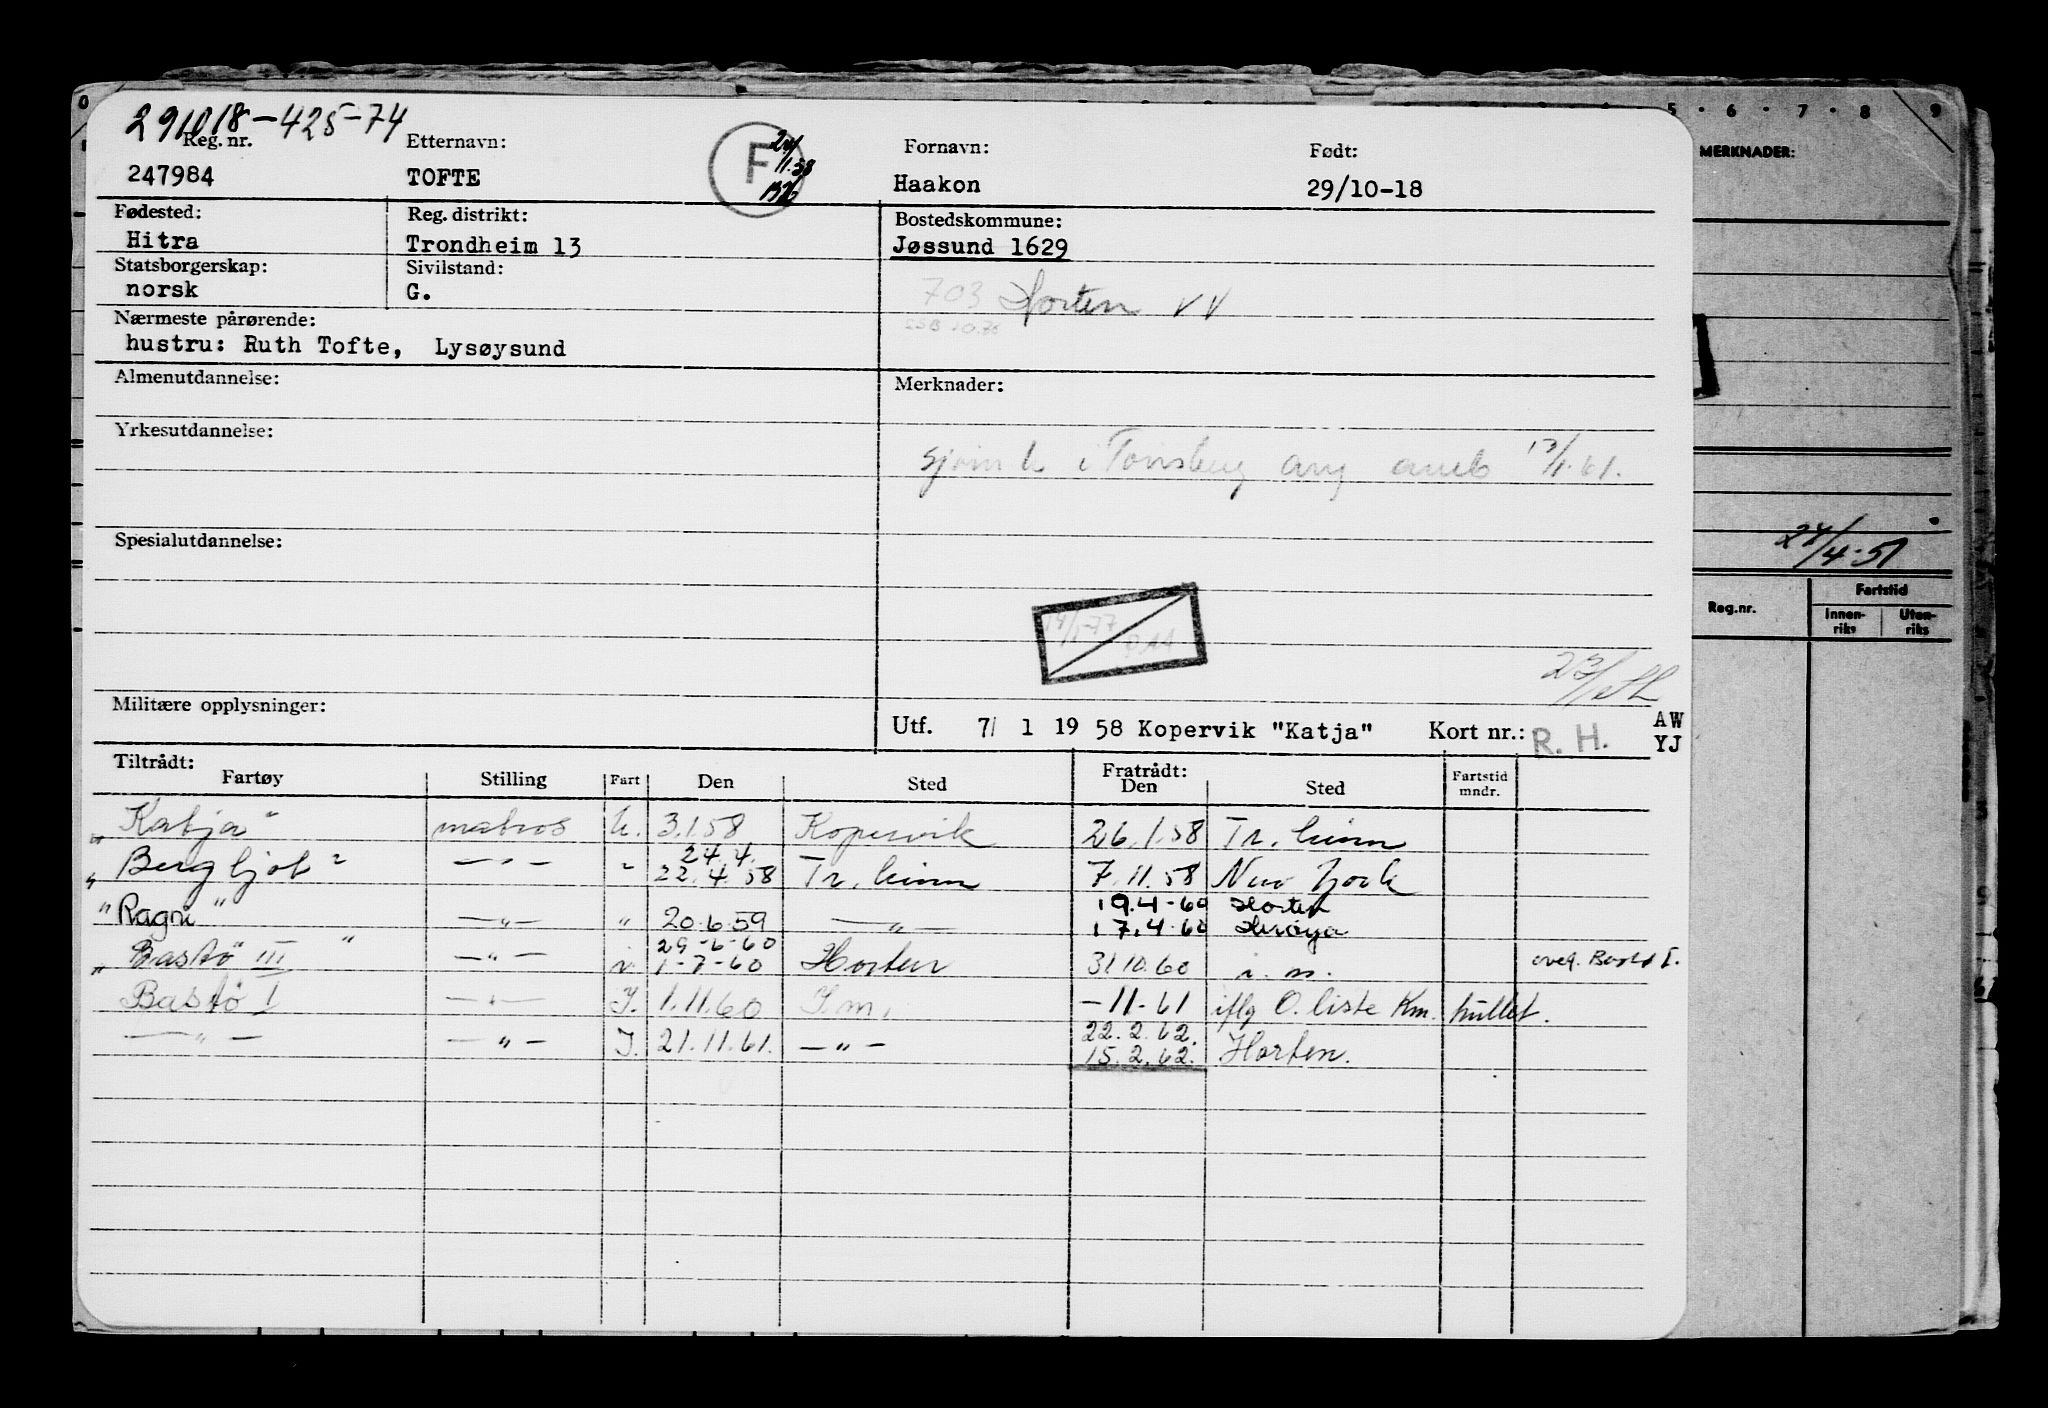 291018-425-74
Reg. nr. Etternavn: F 24/1.58 Fornavn: Født:
247984 TOFTE Haakon 29/10-18
Fødested: Reg. distrikt: Bostedskommune:
Hitra Trondheim 13 Jøssund 1629
Statsborgerskap: Sivilstand:
norsk G. 703 Horten VV
Nærmeste pårørende:
hustru: Ruth Tofte, Lysøysund
Almenutdannelse: Merknader:
Yrkesutdannelse:
sjøm k i Tønsberg ang 13/1.61.
Spesialutdannelse:
14/1-77
Militære opplysninger:
Utf. 7/ 1 19 58 Kopervik "Katja" Kort nr.: R. H. AW
YJ
Tiltrådt: Fratrådt:
Fartøy Stilling Fart Den Sted Den Sted Fartstid mndr.
"Katja" matros U. 3.1.58 Kopervik 26.1.58 Tr.heim
24.4.
"Bergljot" —"— " 22.4.58 Tr.heim 7.11.58 New York
19.4-60 Horten
"Ragni" —"— " 20.6.59 —"— 17.4.60 Herøya
29-6-60
"Bastø III" —"— 1-7-60 Horten 31.10.60 i.m. overf. Bastø I.
Bastø I —"— I. 1.11.60 I.m. —11-61 iflg O.liste Km. hullet.
22.2.62.
—"— —"— I. 21.11.61. —"— 15.2.62. Horten.
0 5 · 6 · 7 · 8 · 9
MERKNADER:
24/4-51
Reg.nr. Fartstid
Innenriks Utenriks